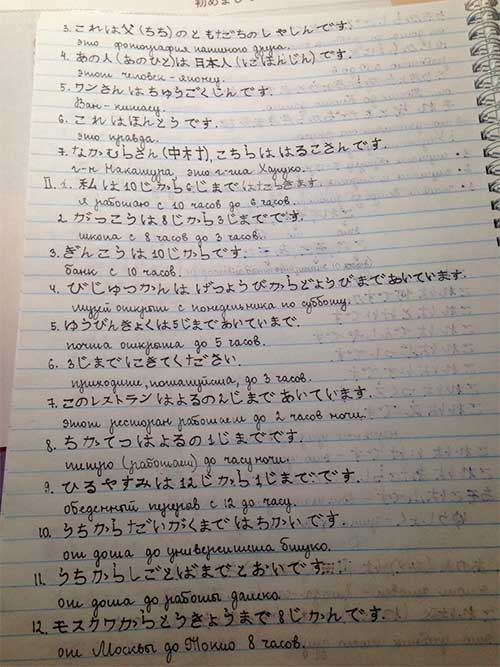 3. これは父(ちち)のともだちのしゃしんです。
это фотография папиного друга.
4. あの人(あのひと)は日本人(にほんじん)です。
этот человек - японец.
5. ワンさんはちゅうごくじんです。
Ван - китаец.
6. これはほんとうです。
это правда.
7. なかむらさん(中村), こちらははるこさんです。
г-н Накамура, это г-жа Харуко.
II. 1. 私は10じから6じまではたらきます。
я работаю с 10 часов до 6 часов.
2. がっこうは8じから3じまでです。
школа с 8 часов до 3 часов.
3. ぎんこうは10じからです。
банк с 10 часов.
4. びじゅつかんはげつようびからどようびまであいています.
музей открыт с понедельника по субботу.
5. ゆうびんきょくは5じまであいていまで.
почта открыта до 5 часов.
6. 3じまでにきてください.
приходите, пожалуйста, до 3 часов.
7. このレストランはよるの2じまであいています.
этот ресторан работает до 2 часов ночи.
8. ちかてつはよるの1じまでです.
метро (работает) до часу ночи.
9. ひるやすみは12じから1じまでです.
обеденный перерыв с 12 до часу.
10. うちからだいがくまではちかいです.
от дома до университета близко.
11. うちからしごとばまでとおいです.
от дома до работы далеко.
12. モスクワからとうきょうまで8じかんです.
от Москвы до Токио 8 часов.